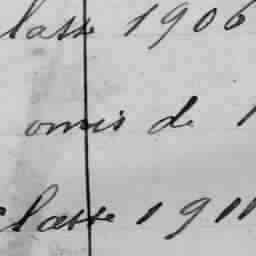 lasse 1906
omis de 1
classe 1911